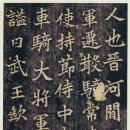 人也晉河間
軍遷散騎常
使持節侍中
車騎大將軍
謚曰武王歆